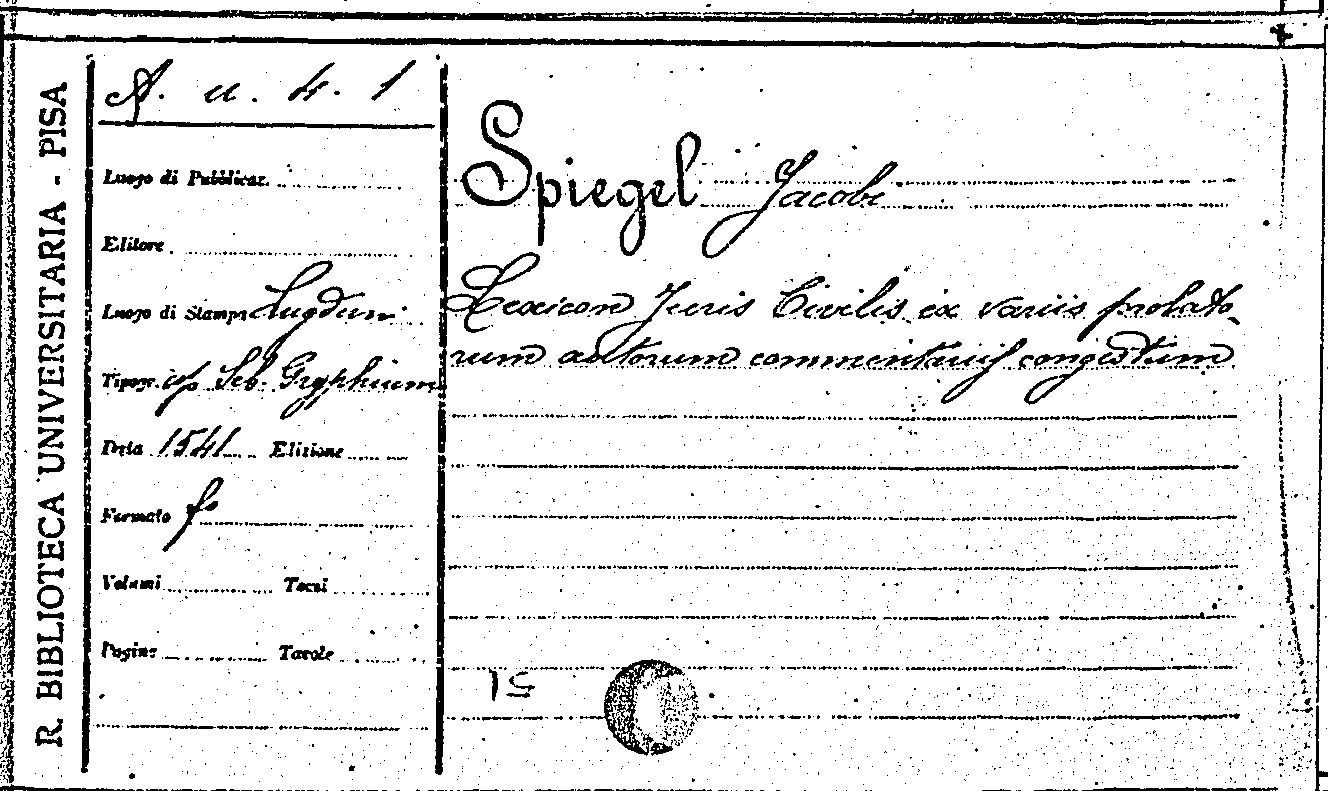 R. BIBLIOTECA UNIVERSITARIA - PISA
A. u. 4. 1
Luogo di Pubblicaz.
Editore
Luogo di Stampa Lugduni
Tipogr. ap. Seb. Gryphium
Data 1541 Edizione
Formato fº
Volumi Tomi
Pagine Tavole
Spiegel Jacobi
Lexicon Juris Civilis ex variis probato-
rum autorum commentariis congestum